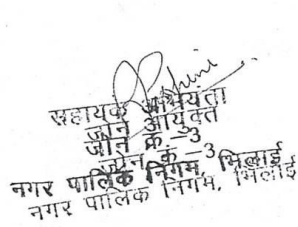 सहायक अभियंता
जोन आयुक्त
जोन क्र.-3
जोन क्र.-3
नगर पालिक निगम, भिलाई
नगर पालिक निगम, भिलाई